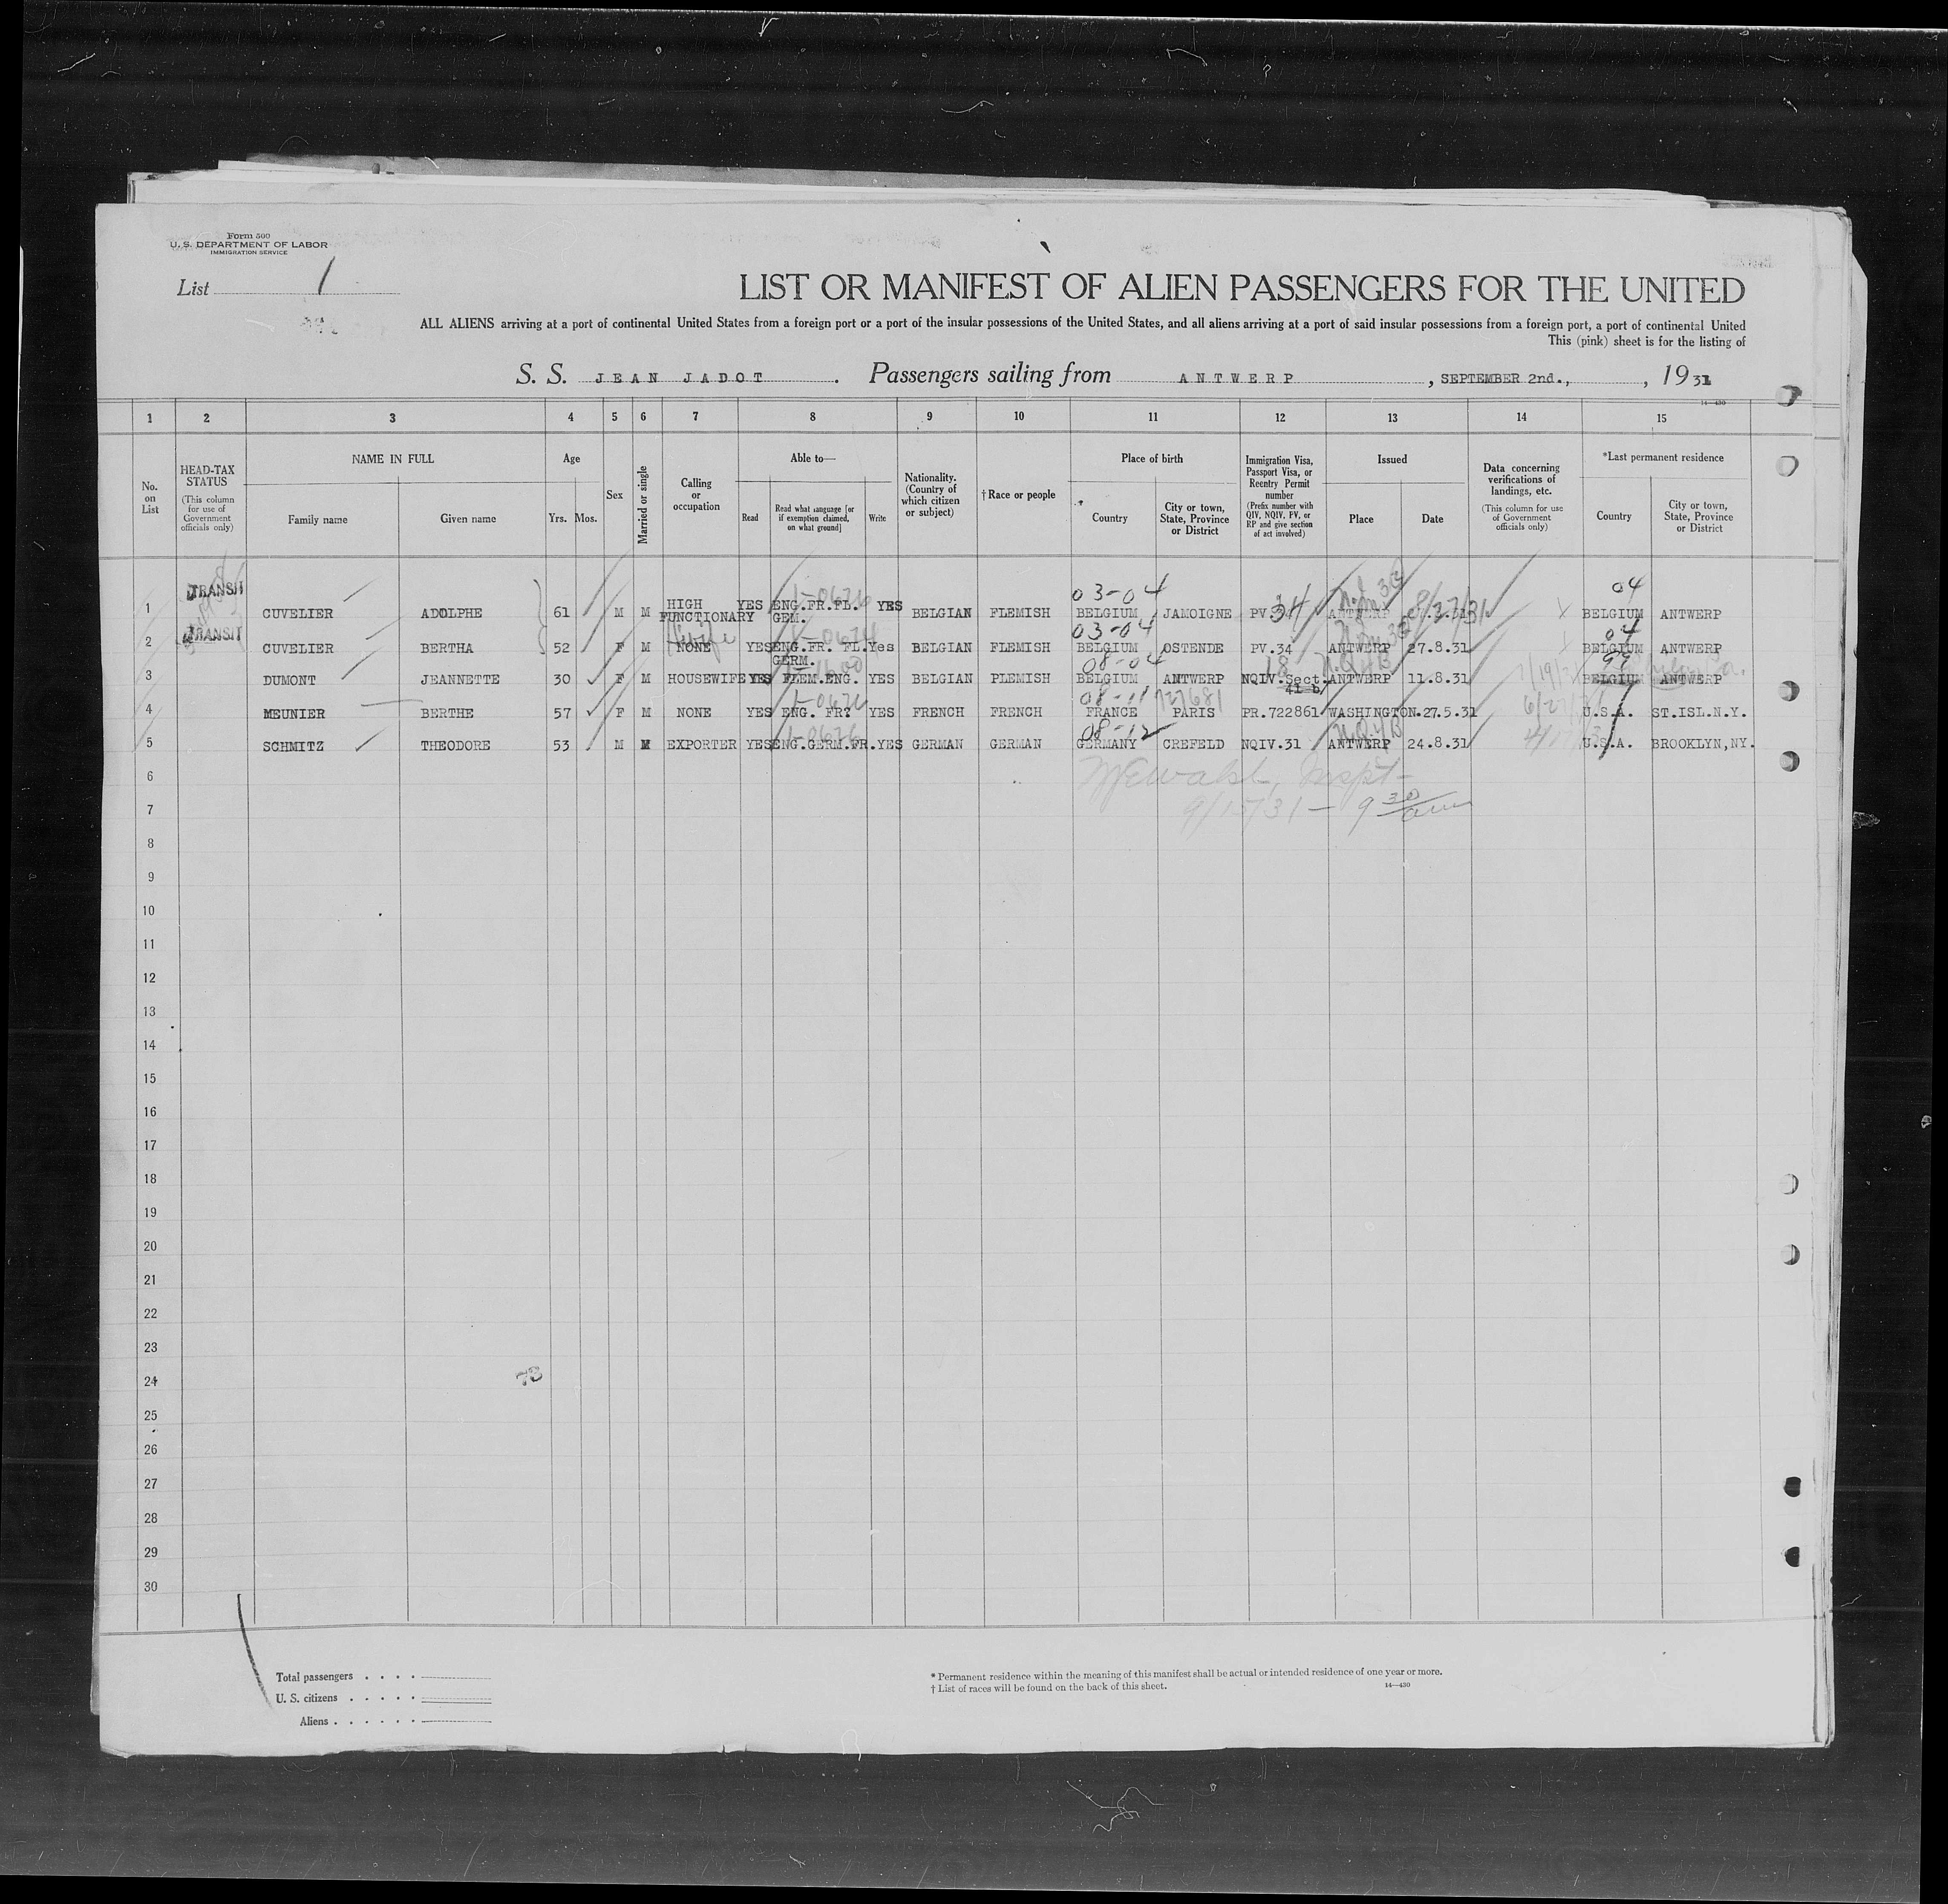 Form 500
U. S. DEPARTMENT OF LABOR
IMMIGRATION SERVICE
List 1
LIST OR MANIFEST OF ALIEN PASSENGERS FOR THE UNITED
ALL ALIENS arriving at a port of continental United States from a foreign port or a port of the insular possessions of the United States, and all aliens arriving at a port of said insular possessions from a foreign port, a port of continental United
This (pink) sheet is for the listing of
S. S. JEAN JADOT. Passengers sailing from ANTWERP, SEPTEMBER 2nd., , 1931
14—430
1 2 3 4 5 6 7 8 9 10 11 12 13 14 15
No. on List
HEAD-TAX STATUS (This column for use of Government officials only)
NAME IN FULL Family name Given name
Age Yrs. Mos.
Sex
Married or single
Calling or occupation
Able to— Read Read what language [or if exemption claimed, on what ground] Write
Nationality. (Country of which citizen or subject)
†Race or people
Place of birth Country City or town, State, Province or District
Immigration Visa, Passport Visa, or Reentry Permit number (Prefix number with QIV, NQIV, PV, or RP and give section of act involved)
Issued Place Date
Data concerning verifications of landings, etc. (This column for use of Government officials only)
*Last permanent residence Country City or town, State, Province or District
TRANSIT 03-04 04
1 CUVELIER ADOLPHE 61 M M HIGH FUNCTIONARY YES ENG.FR.FL. GEM. YES BELGIAN FLEMISH BELGIUM JAMOIGNE PV.34 ANTWERP 8/27/31 BELGIUM ANTWERP
TRANSIT Wife 03-04 04
2 CUVELIER BERTHA 52 F M NONE YES ENG.FR. FL. GERM. Yes BELGIAN FLEMISH BELGIUM OSTENDE PV.34 ANTWERP 27.8.31 BELGIUM ANTWERP
08-04 18 99
3 DUMONT JEANNETTE 30 F M HOUSEWIFE YES FLEM.ENG. YES BELGIAN FLEMISH BELGIUM ANTWERP NQIV.Sect. 41-b ANTWERP 11.8.31 BELGIUM ANTWERP
08-11 727681
4 MEUNIER BERTHE 57 F M NONE YES ENG. FR. YES FRENCH FRENCH FRANCE PARIS PR.722861 WASHINGTON.27.5.31 U.S.A. ST.ISL.N.Y.
08-12
5 SCHMITZ THEODORE 53 M M EXPORTER YES ENG.GERM.FR. YES GERMAN GERMAN GERMANY CREFELD NQIV.31 ANTWERP 24.8.31 U.S.A. BROOKLYN,NY.
6
7 9/15/31 – 9 30 am
8
9
10
11
12
13
14
15
16
17
18
19
20
21
22
23
24 73
25
26
27
28
29
30
Total passengers . . . .
U. S. citizens . . . . .
Aliens . . . . . .
* Permanent residence within the meaning of this manifest shall be actual or intended residence of one year or more.
† List of races will be found on the back of this sheet.
14—430